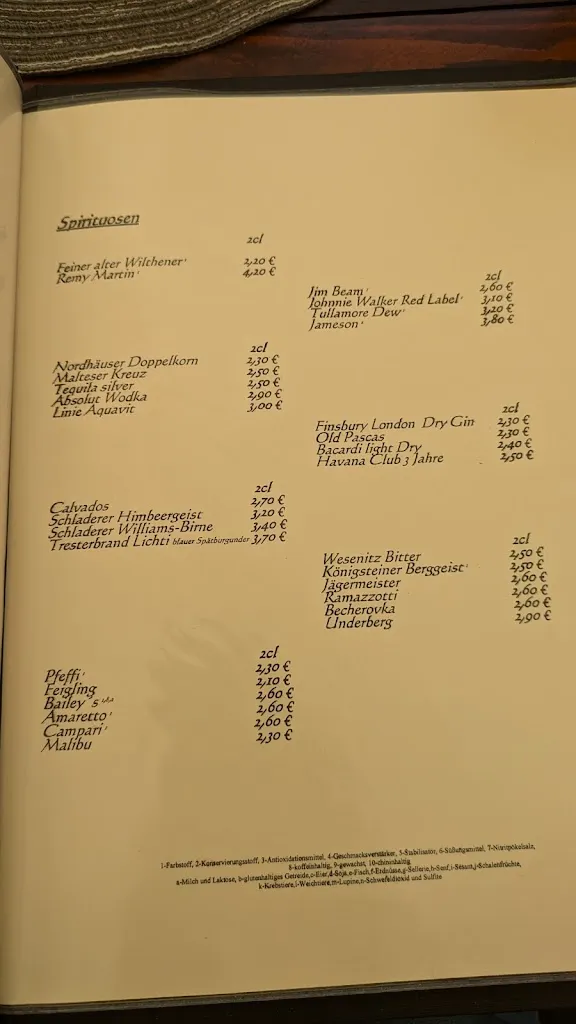 Spirituosen
2cl
Feiner alter Wilthener¹ 2,20 €
Remy Martin¹ 4,20 €
2cl
Jim Beam¹ 2,60 €
Johnnie Walker Red Label¹ 3,10 €
Tullamore Dew¹ 3,20 €
Jameson¹ 3,80 €
2cl
Nordhäuser Doppelkorn 2,30 €
Malteser Kreuz 2,50 €
Tequila silver 2,50 €
Absolut Wodka 2,90 €
Linie Aquavit 3,00 €
2cl
Finsbury London Dry Gin 2,30 €
Old Pascas 2,30 €
Bacardi light Dry 2,40 €
Havana Club 3 Jahre 2,50 €
2cl
Calvados 2,70 €
Schladerer Himbeergeist 3,20 €
Schladerer Williams-Birne 3,40 €
Tresterbrand Lichti blauer Spätburgunder 3,70 €
2cl
Wesenitz Bitter 2,50 €
Königsteiner Berggeist¹ 2,50 €
Jägermeister 2,60 €
Ramazzotti 2,60 €
Becherovka 2,60 €
Underberg 2,90 €
2cl
Pfeffi¹ 2,30 €
Feigling 2,10 €
Bailey´s 2,60 €
Amaretto¹ 2,60 €
Campari¹ 2,60 €
Malibu 2,30 €
1-Farbstoff, 2-Konservierungsstoff, 3-Antioxidationsmittel, 4-Geschmacksverstärker, 5-Stabilisator, 6-Süßungsmittel, 7-Nitritpökelsalz,
8-koffeinhaltig, 9-gewachst, 10-chininhaltig
a-Milch und Laktose, b-glutenhaltiges Getreide,c-Eier,d-Soja,e-Fisch,f-Erdnüsse,g-Sellerie,h-Senf,i-Sesam,j-Schalenfrüchte,
k-Krebstiere,l-Weichtiere,m-Lupine,n-Schwefeldioxid und Sulfite